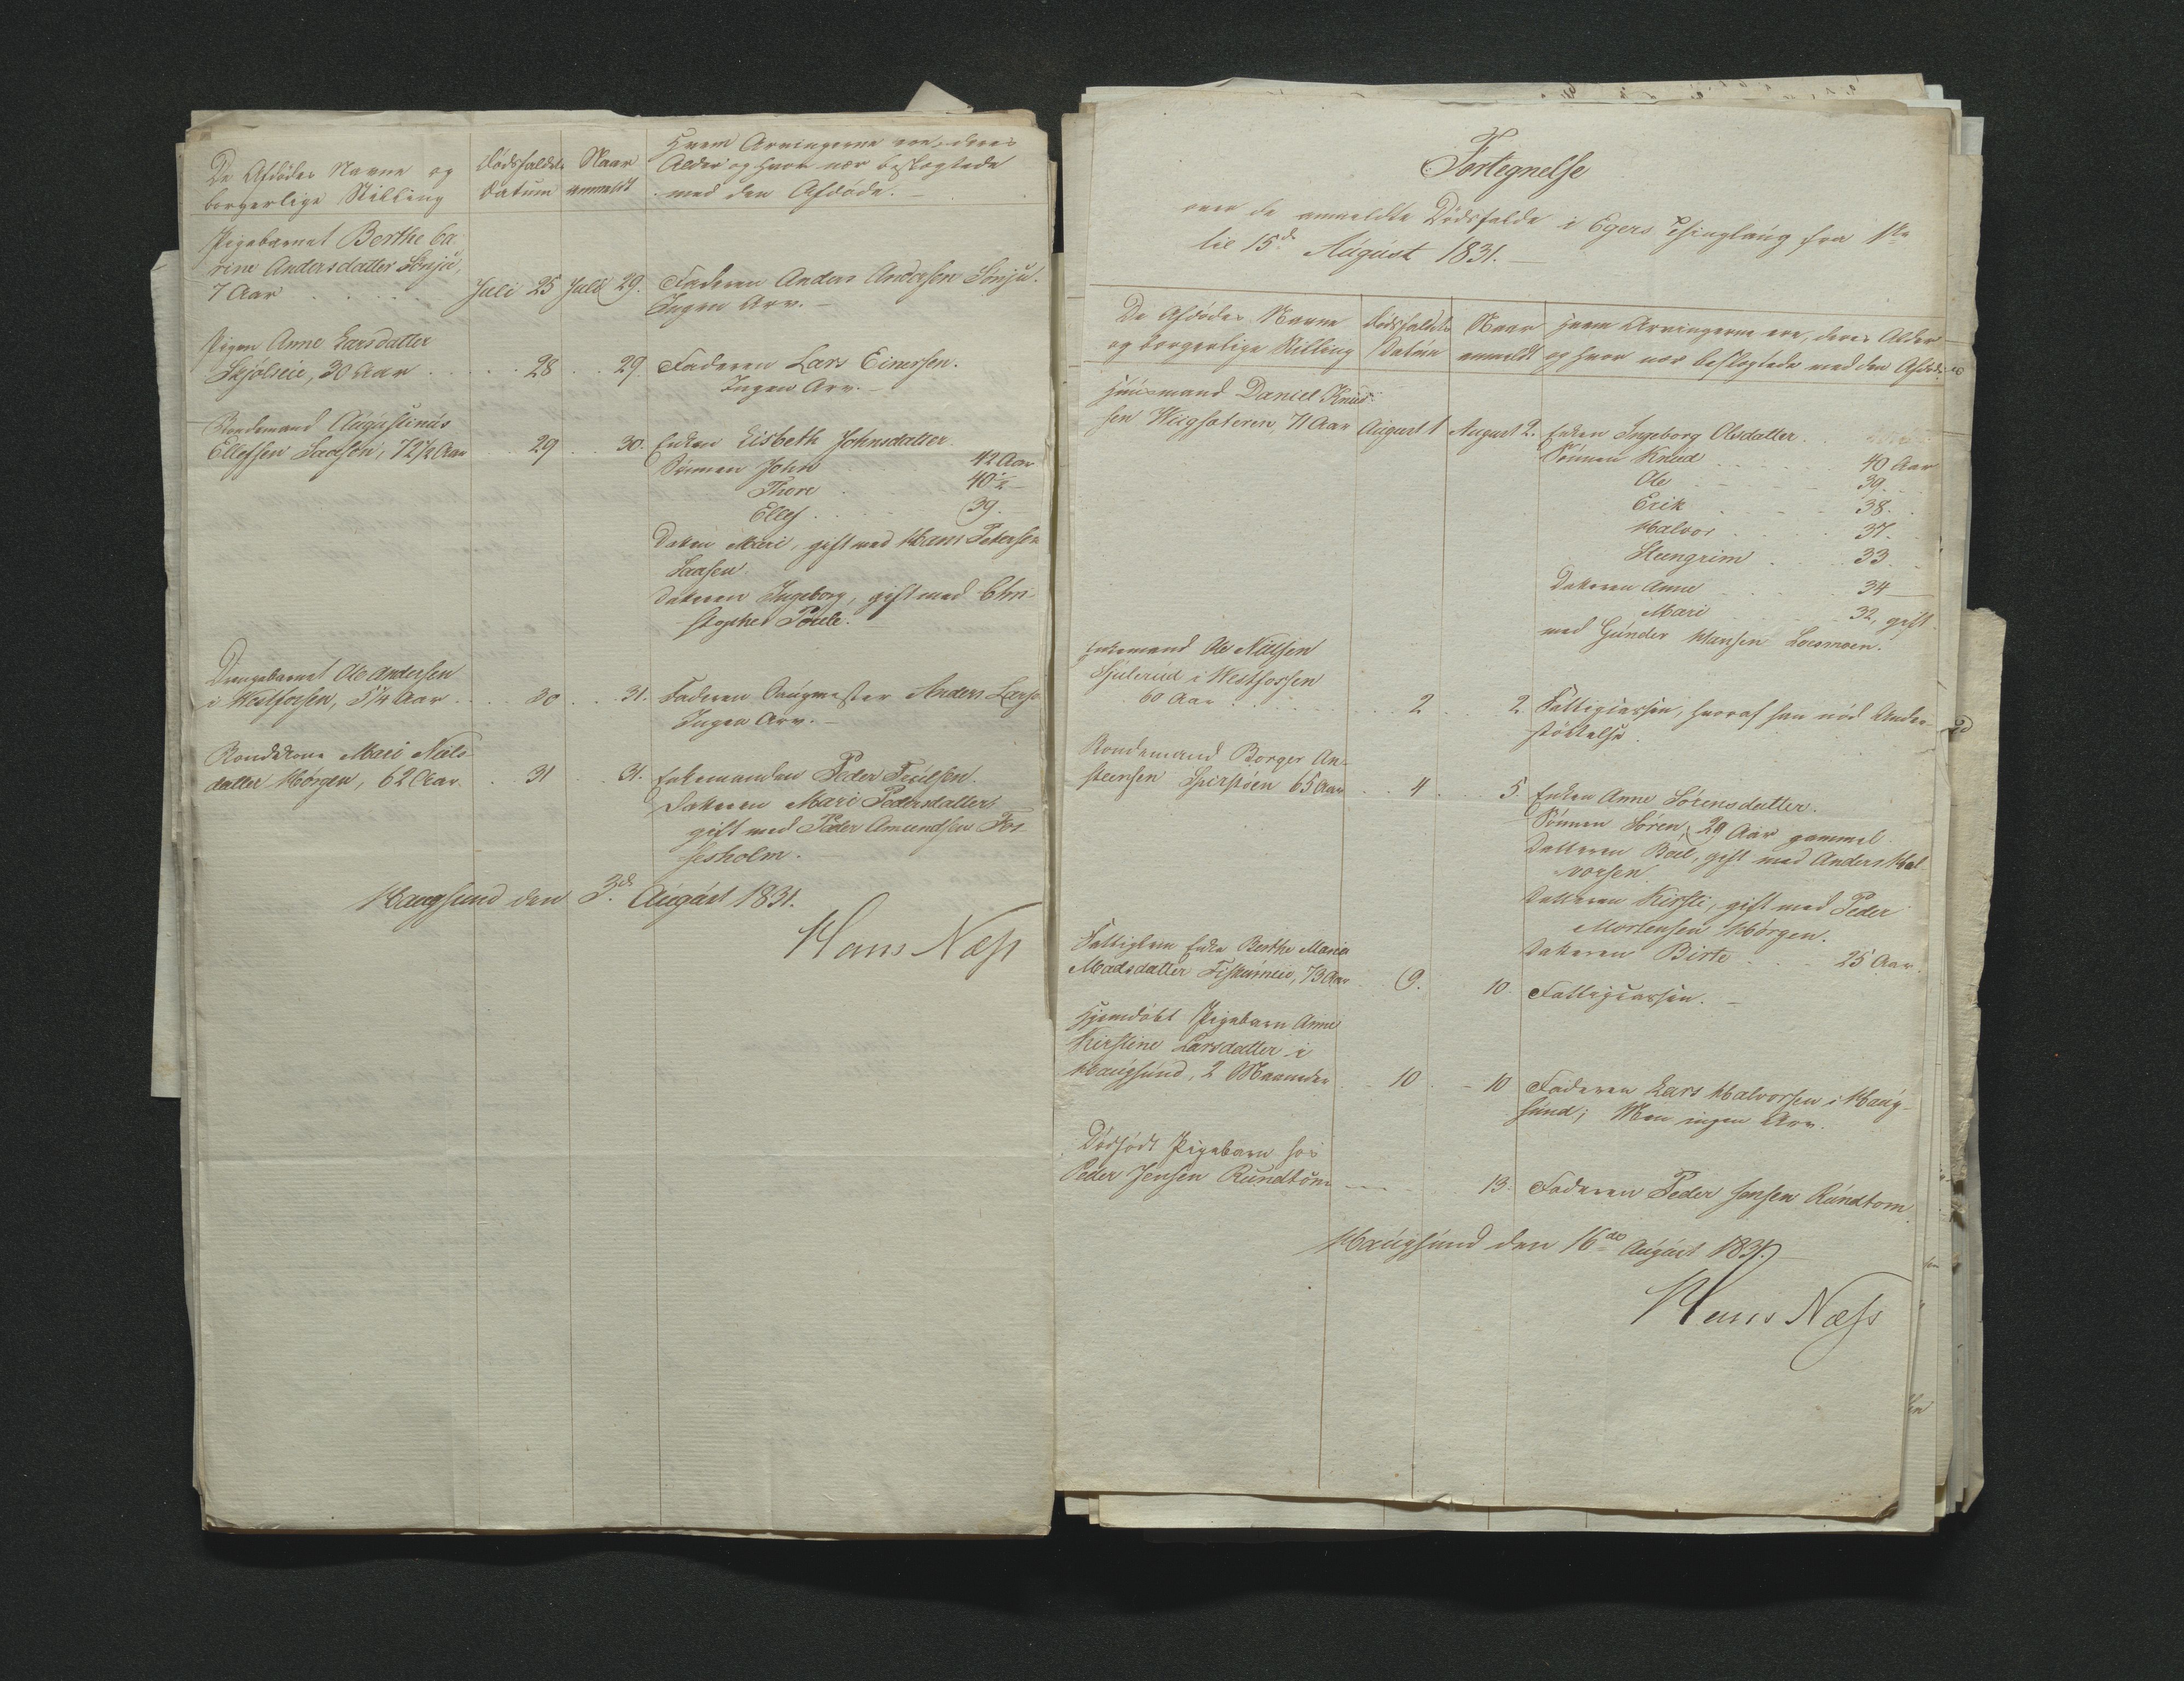 De Afdødes Navne og
borgerlige Stilling
Dødsfaldets
Datum
Naar
anmeldt
Hvem Arvingerne ere, deres
Alder og hvor nær beslægtede
med den Afdøde.
Pigebarnet Berthe Ca-
rine Andersdatter Sønju,
7 Aar . . . . Juli 25 Juli 29. Faderen Anders Andersen Sønju.
Ingen Arv. —
Pigen Anne Larsdatter
Skjølseie, 30 Aar . . . 28 . . 29 Faderen Lars Einersen.
Ingen Arv. —
Bondemand Augustinus
Ellefsen Saasen, 72½ Aar . . 29 . . 30. Enken Lisbeth Johnsdatter.
Sønnen John . . . 42 Aar
Thore . . . 40½ —
Ellef . . . 39. —
Datren Mari, gift med Hans Petersen
Saasen.
Datteren Ingeborg, gift med Chri-
stopher
Drengebarnet Ole Andersen
i Westfossen, 5¼ Aar . . 30 . . 31. Faderen Anders Larsen
Ingen Arv. —
Bondekone Mari Niels-
datter Hørgen, 62 Aar . 31 . 31. Enkemanden Peder
Datteren Mari Pedersdatter
gift med Peder Amundsen Fos-
sesholm.
Haugsund den 3d. August 1831.
Hans Næss
Fortegnelse
over de anmeldte Dødsfalde i Egers Thinglaug fra 1ste
til 15d. August 1831. —
De Afdødes Navne
og borgerlige Stilling
Dødsfaldets
Datum
Naar
anmeldt
Hvem Arvingerne ere, deres Alder
og hvor nær beslægtede med den Afdøde
Huusmand Daniel Knud-
sen Wiigsæteren, 71 Aar August 1 August 2. Enken Ingeborg Olsdatter.
Sønnen Knud . . . 40 Aar
Ole . . . 39. —
Erik . . . 38. —
Halvor . . . 37. —
Steengrim . . . 33. —
Datteren Anne . . . 34 —
Mari . . . 32, gift
med Gunder Hansen Loesmoen.
Enkemand Ole Nielsen
Hjulerud i Westfossen
60 Aar . . . 2 . . 2. Fattigcassen, hvoraf han nød Under-
støttelse.
Bondemand Borger An-
steensen 65 Aar . . 4 . . 5. Enken Anne Sørensdatter.
Sønnen Søren, 29 Aar gammel.
Datteren Boel, gift med Anders Hal-
vorsen.
Datteren Kirsti, gift med Peder
Mortensen Hørgen.
Datteren Birte . . . 25 Aar.
Fattiglem Enke Berthe Maria
Madsdatter 73 Aar . . 9. . 10. Fattigcassen. —
Hjemdøbt Pigebarn Anne
Kirstine Larsdatter i
Haugsund, 2 Maaneder . . 10 . — 10 Faderen Lars Halvorsen i Haug-
sund; Men ingen Arv.
Dødfødt Pigebarn hos
Peder Jensen Rundtom — . . 13. Faderen Peder Jensen Rundtom.
Haugsund den 16de August 1831.
Hans Næss